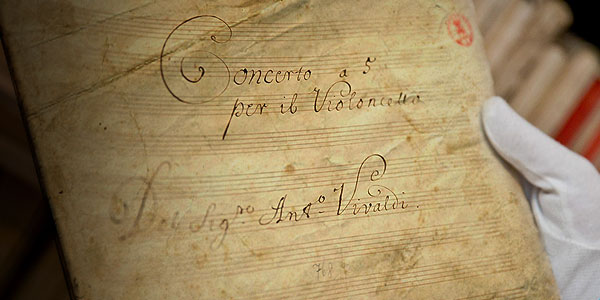 Concerto a 5.
per il Violoncello
Del Sig.ro Ant.o Vivaldi.